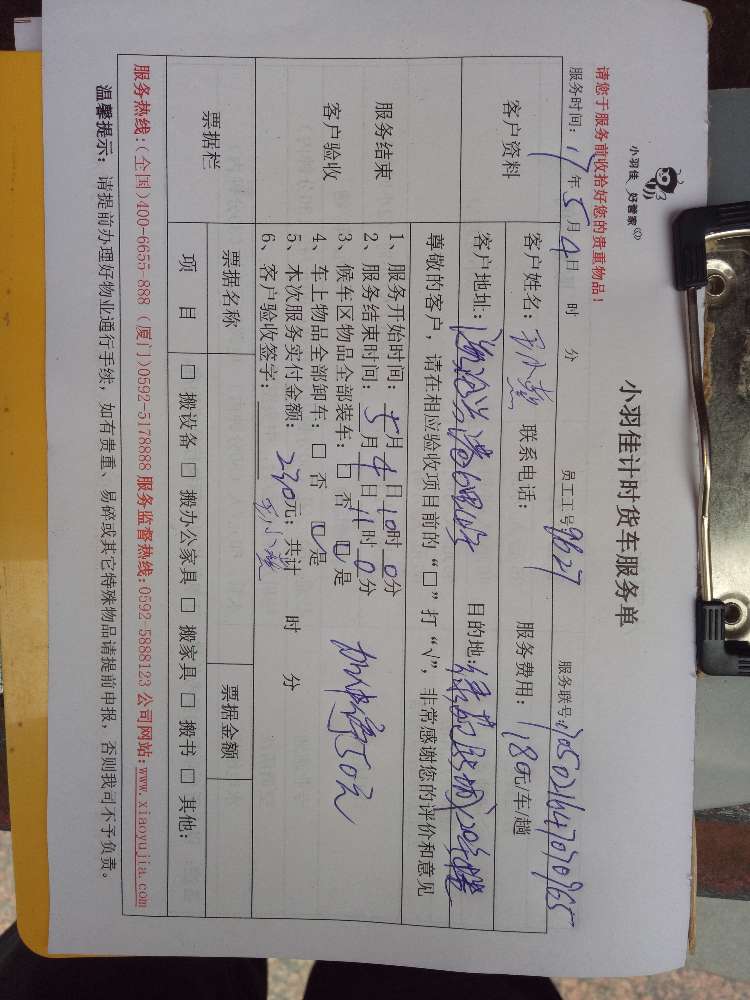 小羽佳 好管家
小羽佳计时货车服务单
请您于服务前收拾好您的贵重物品！
服务时间：17年5月4日 时 分 员工工号9627 服务联号：
客户资料
客户姓名： 联系电话： 服务费用：180元/车/趟
客户地址： 目的地：
尊敬的客户，请在相应验收项目前的“□”打“√”，非常感谢您的评价和意见
服务结束
客户验收
1、服务开始时间：5月4日10时0分
2、服务结束时间：5月4日11时0分
3、候车区物品全部装车：□ 否 □ 是
4、车上物品全部卸车：□ 否 □ 是
5、本次服务实付金额：230元；共计 时 分
6、客户验收签字：
50元
票据栏
票据名称 票据金额
项 目 □ 搬设备 □ 搬办公家具 □ 搬家具 □ 搬书 □ 其他：
服务热线:(全国)400-6655-888 (厦门)0592-5178888 服务监督热线:0592-5888123 公司网站:www.xiaoyujia.com
温馨提示：请提前办理好物业通行手续，如有贵重、易碎或其它特殊物品请提前申报，否则我司不予负责。